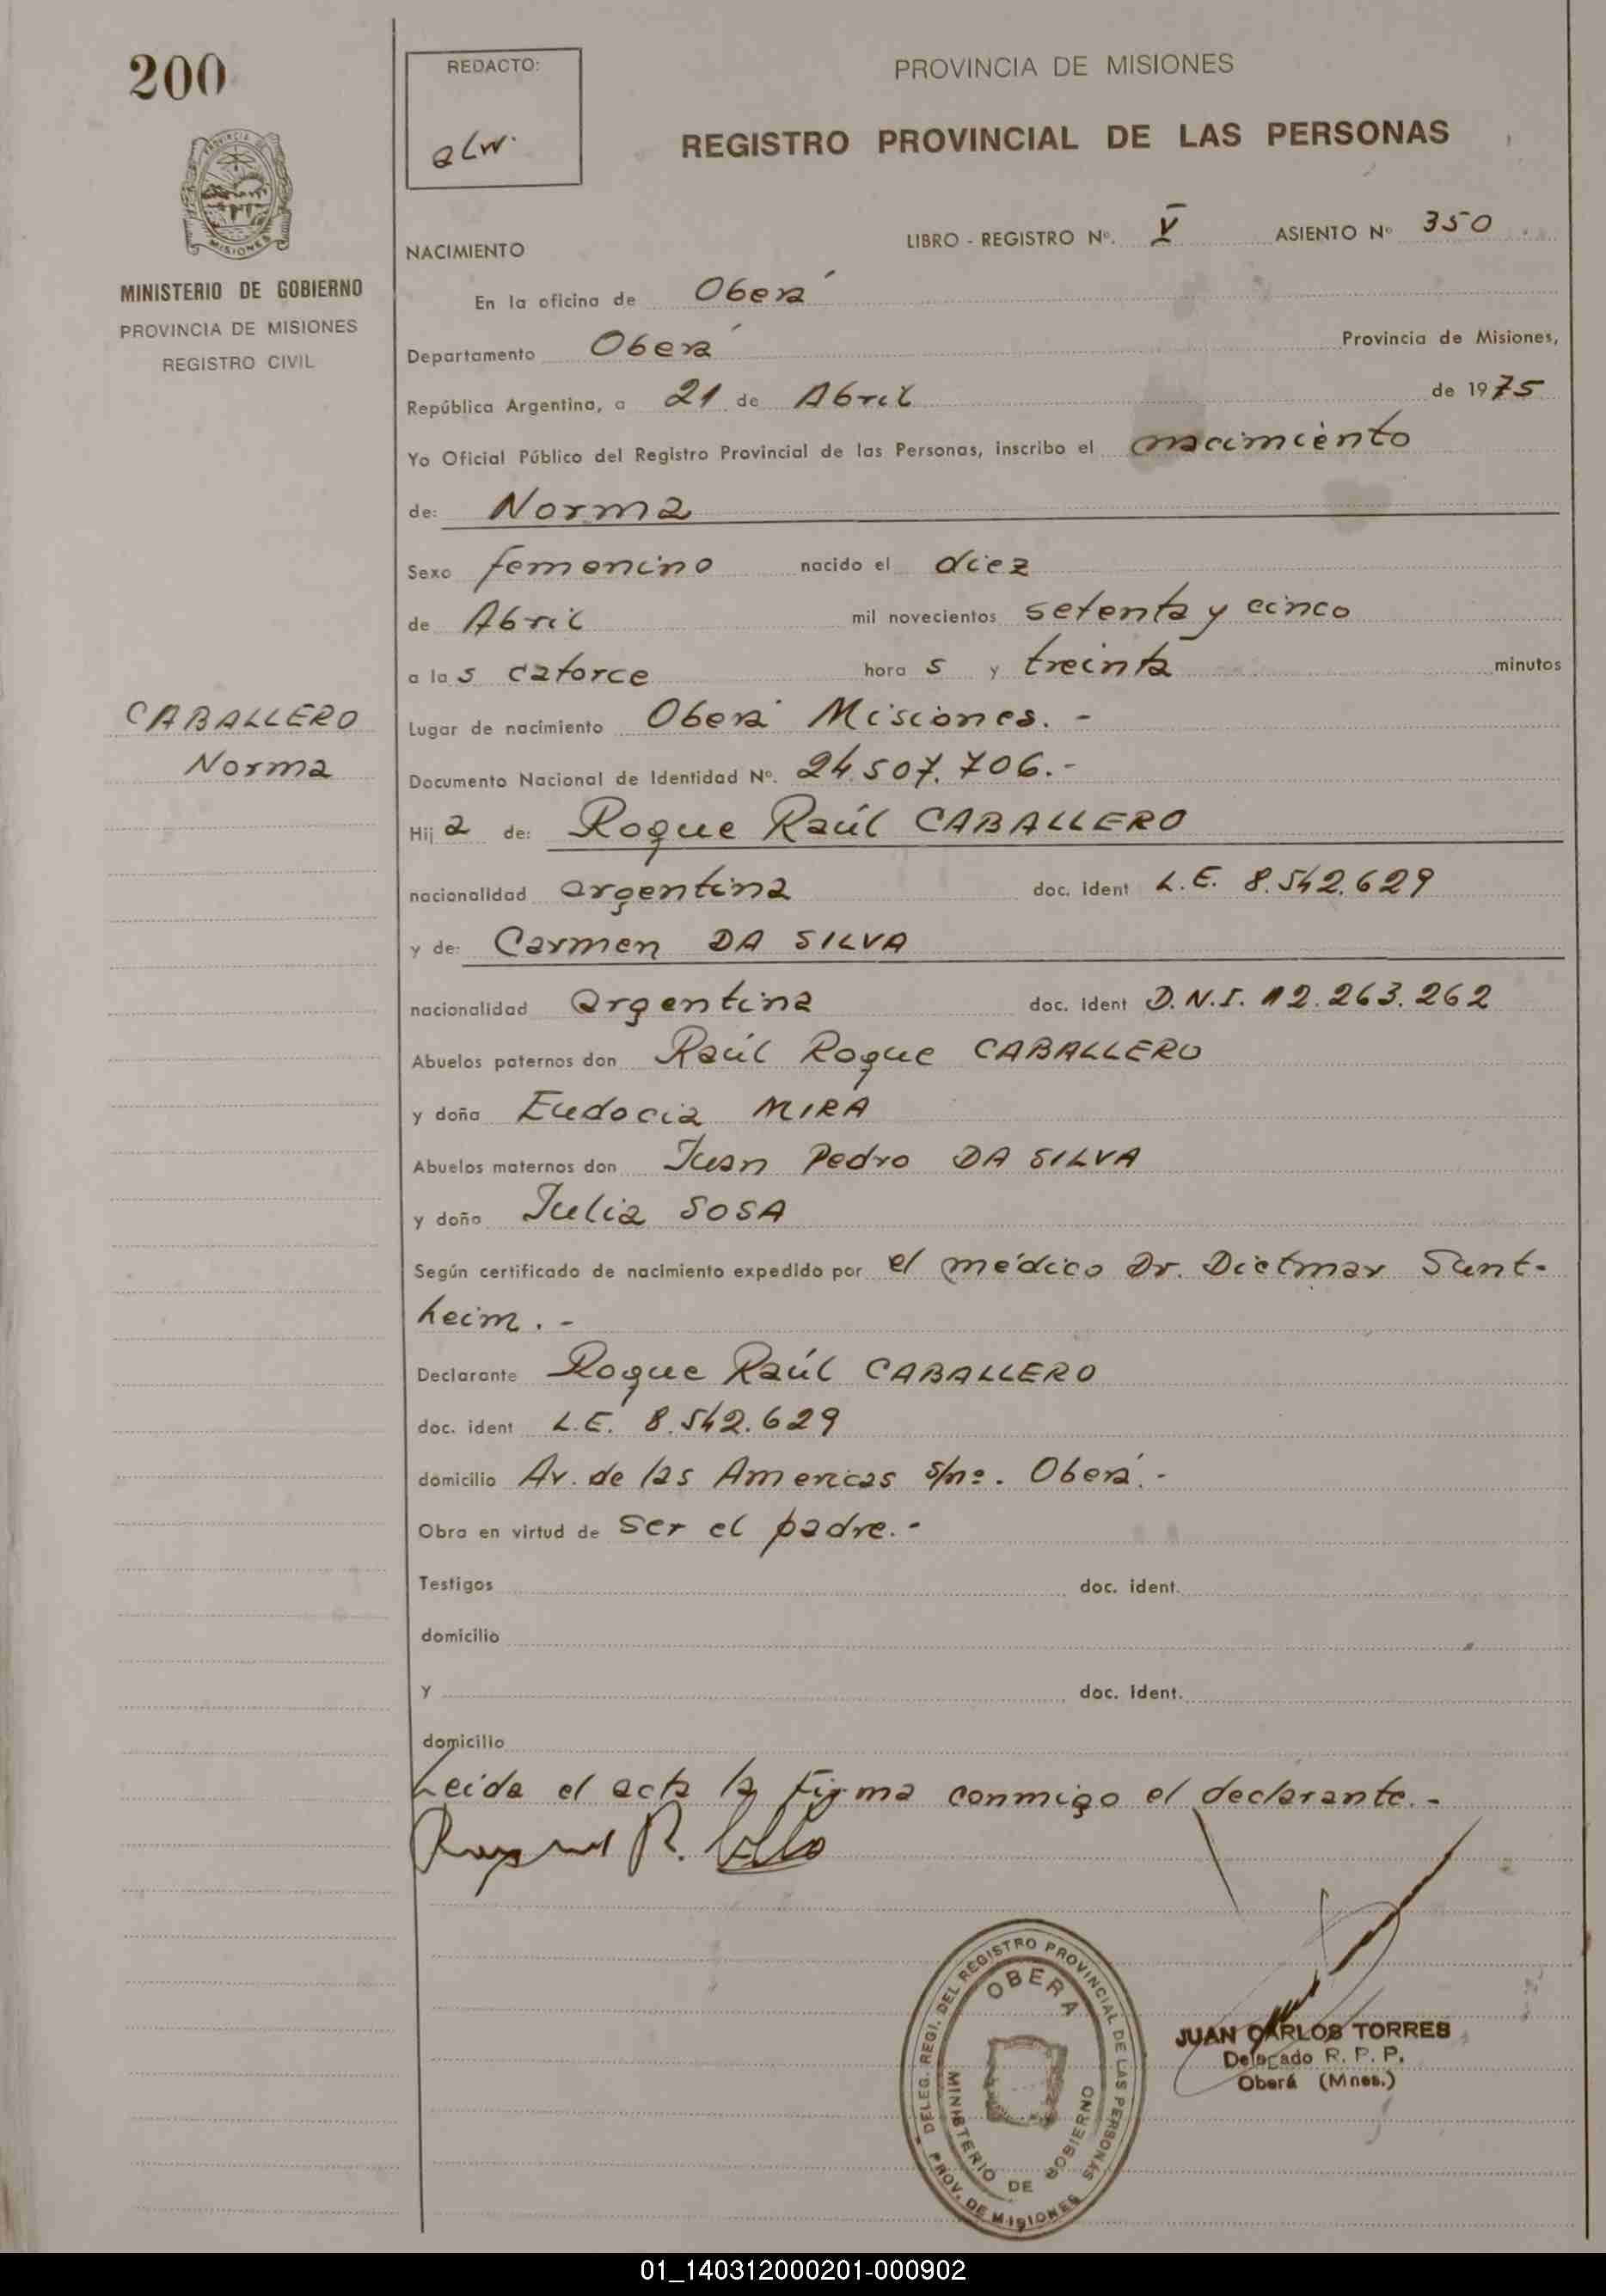 200
REDACTO:
alw.
PROVINCIA DE MISIONES
REGISTRO PROVINCIAL DE LAS PERSONAS
PROVINCIA
MISIONES
MINISTERIO DE GOBIERNO
PROVINCIA DE MISIONES
REGISTRO CIVIL
NACIMIENTO
LIBRO - REGISTRO Nº. V ASIENTO Nº 350
En la oficina de Oberá
Departamento Oberá Provincia de Misiones,
República Argentina, a 21 de Abril de 1975
Yo Oficial Público del Registro Provincial de las Personas, inscribo el nacimiento
de: Norma
Sexo femenino nacido el diez
de Abril mil novecientos setenta y cinco
a las catorce horas y treinta minutos
CABALLERO
Norma
Lugar de nacimiento Oberá Misiones. -
Documento Nacional de Identidad Nº. 24.507.706.-
Hija de: Roque Raúl CABALLERO
nacionalidad argentina doc. ident L.E. 8.542.629
y de: Carmen DA SILVA
nacionalidad argentina doc. ident D.N.I. 12.263.262
Abuelos paternos don Raúl Roque CABALLERO
y doña Eudocia MIRA
Abuelos maternos don Juan Pedro DA SILVA
y doña Julia SOSA
Según certificado de nacimiento expedido por el médico Dr. Dietmar Sunt-
heim. -
Declarante Roque Raúl CABALLERO
doc. ident L.E. 8.542.629
domicilio Av. de las Americas s/nº. Oberá. -
Obra en virtud de ser el padre.-
Testigos doc. ident.
domicilio
y doc. ident.
domicilio
Leida el acta la firma conmigo el declarante. -
DELEG. REGI. DEL REGISTRO PROVINCIAL DE LAS PERSONAS
OBERA
MINISTERIO DE GOBIERNO
PROV. DE MISIONES
JUAN CARLOS TORRES
Delegado R. P. P.
Oberá (Mnes.)
01_140312000201-000902